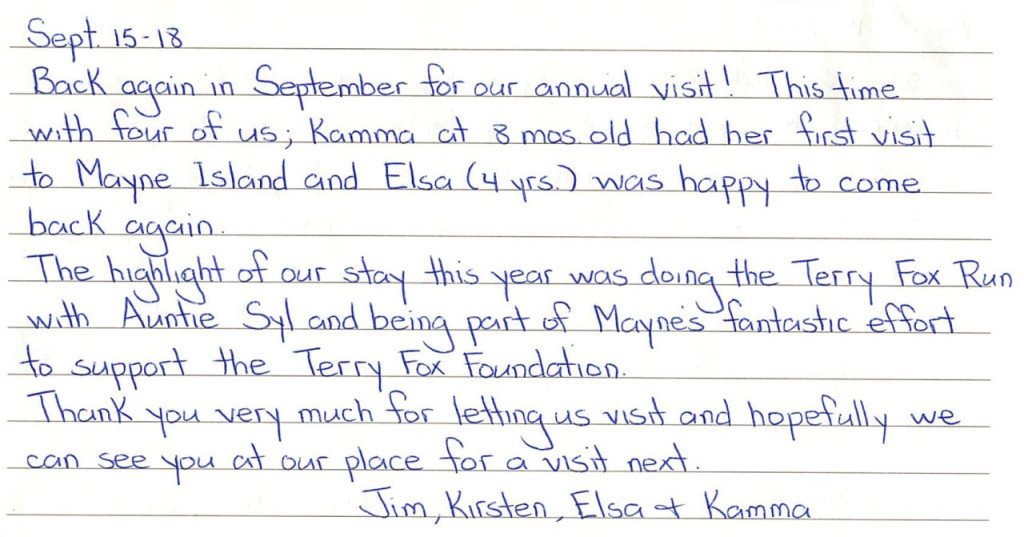 Sept. 15-18
Back again in September for our annual visit! This time
with four of us; Kamma at 8 mos. old had her first visit
to Mayne Island and Elsa (4 yrs.) was happy to come
back again.
The highlight of our stay this year was doing the Terry Fox Run
with Auntie Syl and being part of Mayne's fantastic effort
to support the Terry Fox Foundation.
Thank you very much for letting us visit and hopefully we
can see you at our place for a visit next.
Jim, Kirsten, Elsa + Kamma